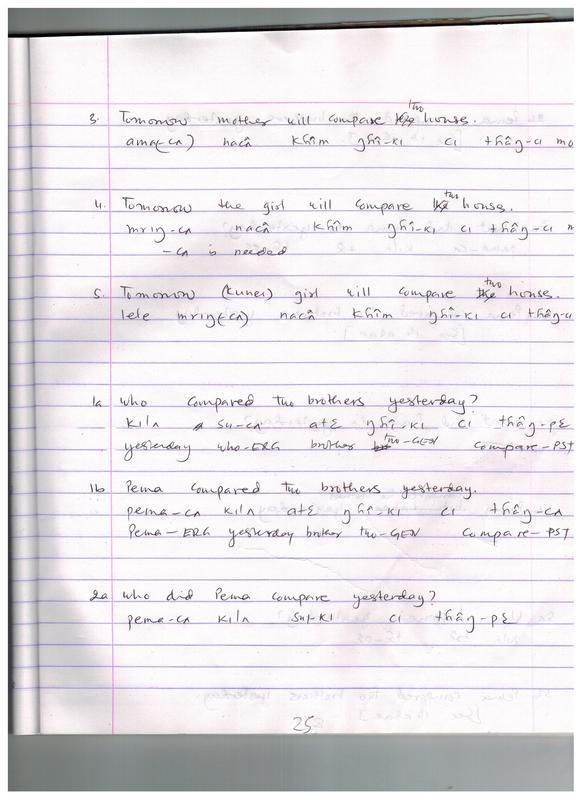 3. Tomorrow mother will compare two house.
ama(-cʌ) nacâ khîm ŋhî-kı cı thâŋ-cı mo
4. Tomorrow the girl will compare two house.
mrıŋ-cʌ nacâ khîm ŋhî-kı cı thâŋ-cı m
-cʌ is needed
5. Tomorrow (kunei) girl will compare two house.
lele mrıŋ(-cʌ) nacâ khîm ŋhî-kı cı thâŋ-c
1a who compared two brothers yesterday?
kılʌ su-cʌ atɛ ŋhî-kı cı thâŋ-pɛ
yesterday who-ERG brother two-GEN compare-PST
1b Pema compared two brothers yesterday.
pema-cʌ kılʌ atɛ ŋhî-kı cı thâŋ-cʌ
Pema-ERG yesterday brother two-GEN compare-PST
2a who did Pema compare yesterday?
pema-cʌ kılʌ su-kı cı thâŋ-pɛ
25